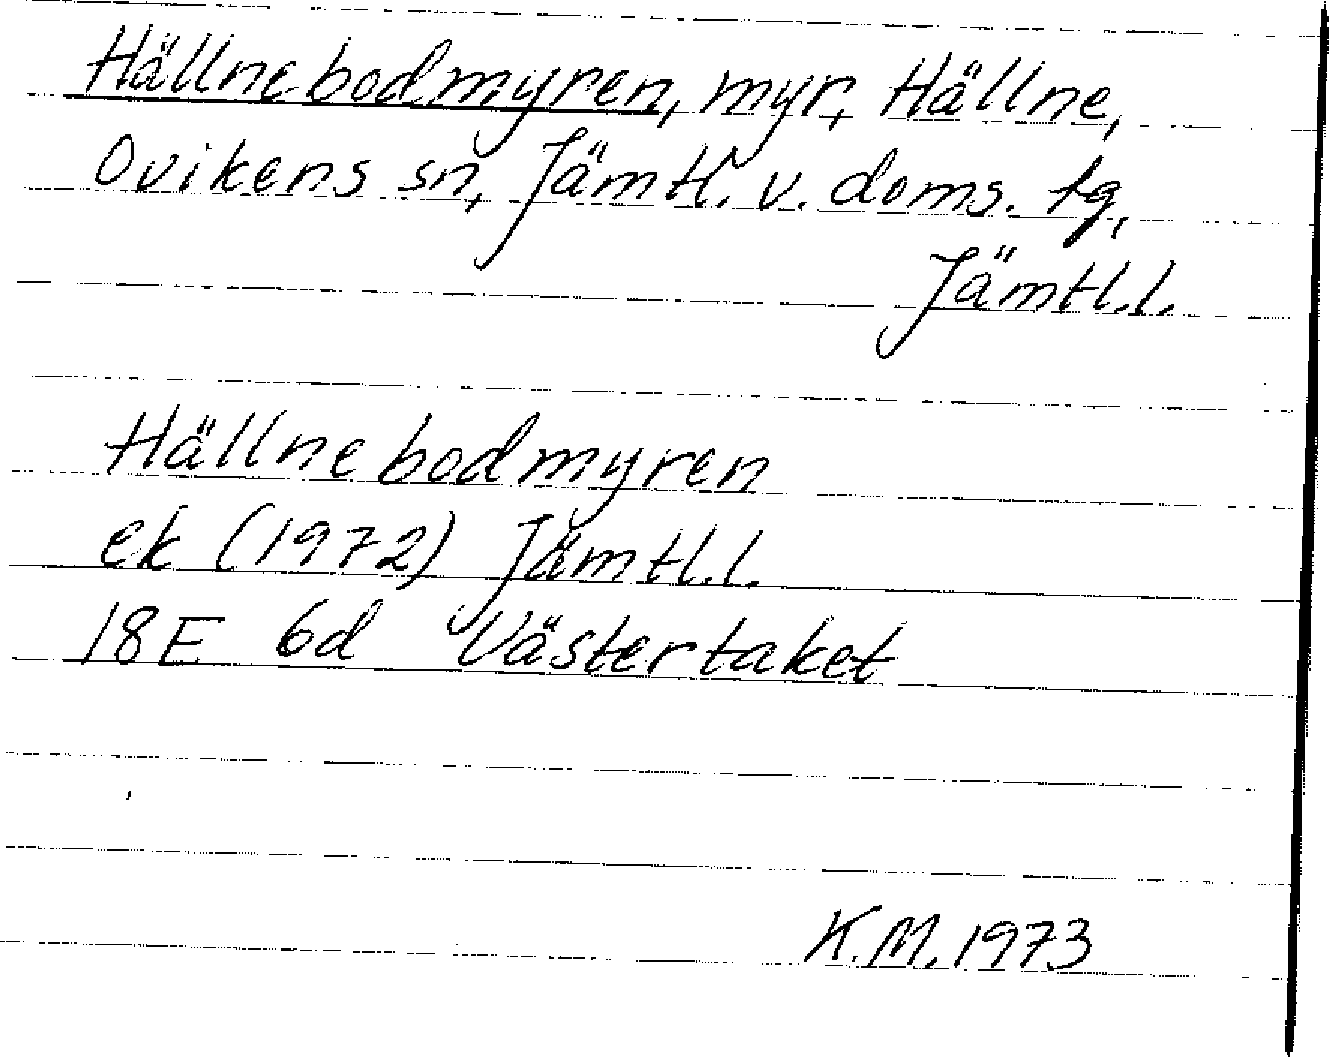 Hällnebodmyren, myr, Hällne,
Ovikens sn, Jämtl. v. doms. tg,
Jämtl.l.
Hällnebodmyren
ek (1972) Jämtl.l.
18E 6d Västertaket
K.M. 1973